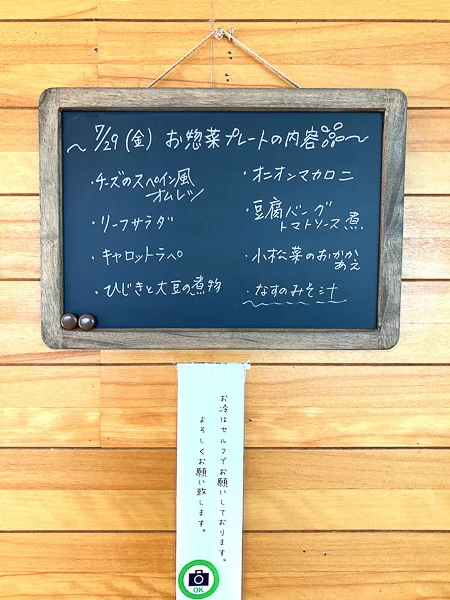 ～ 7/29 (金) お惣菜プレートの内容 ～
・チーズのスペイン風
オムレツ
・リーフサラダ
・キャロットラペ
・ひじきと大豆の煮物
・オニオンマカロニ
・豆腐バーグ
トマトソース煮
・小松菜のおかか
あえ
・なすのみそ汁
お冷はセルフでお願いしております。
よろしくお願い致します。
OK